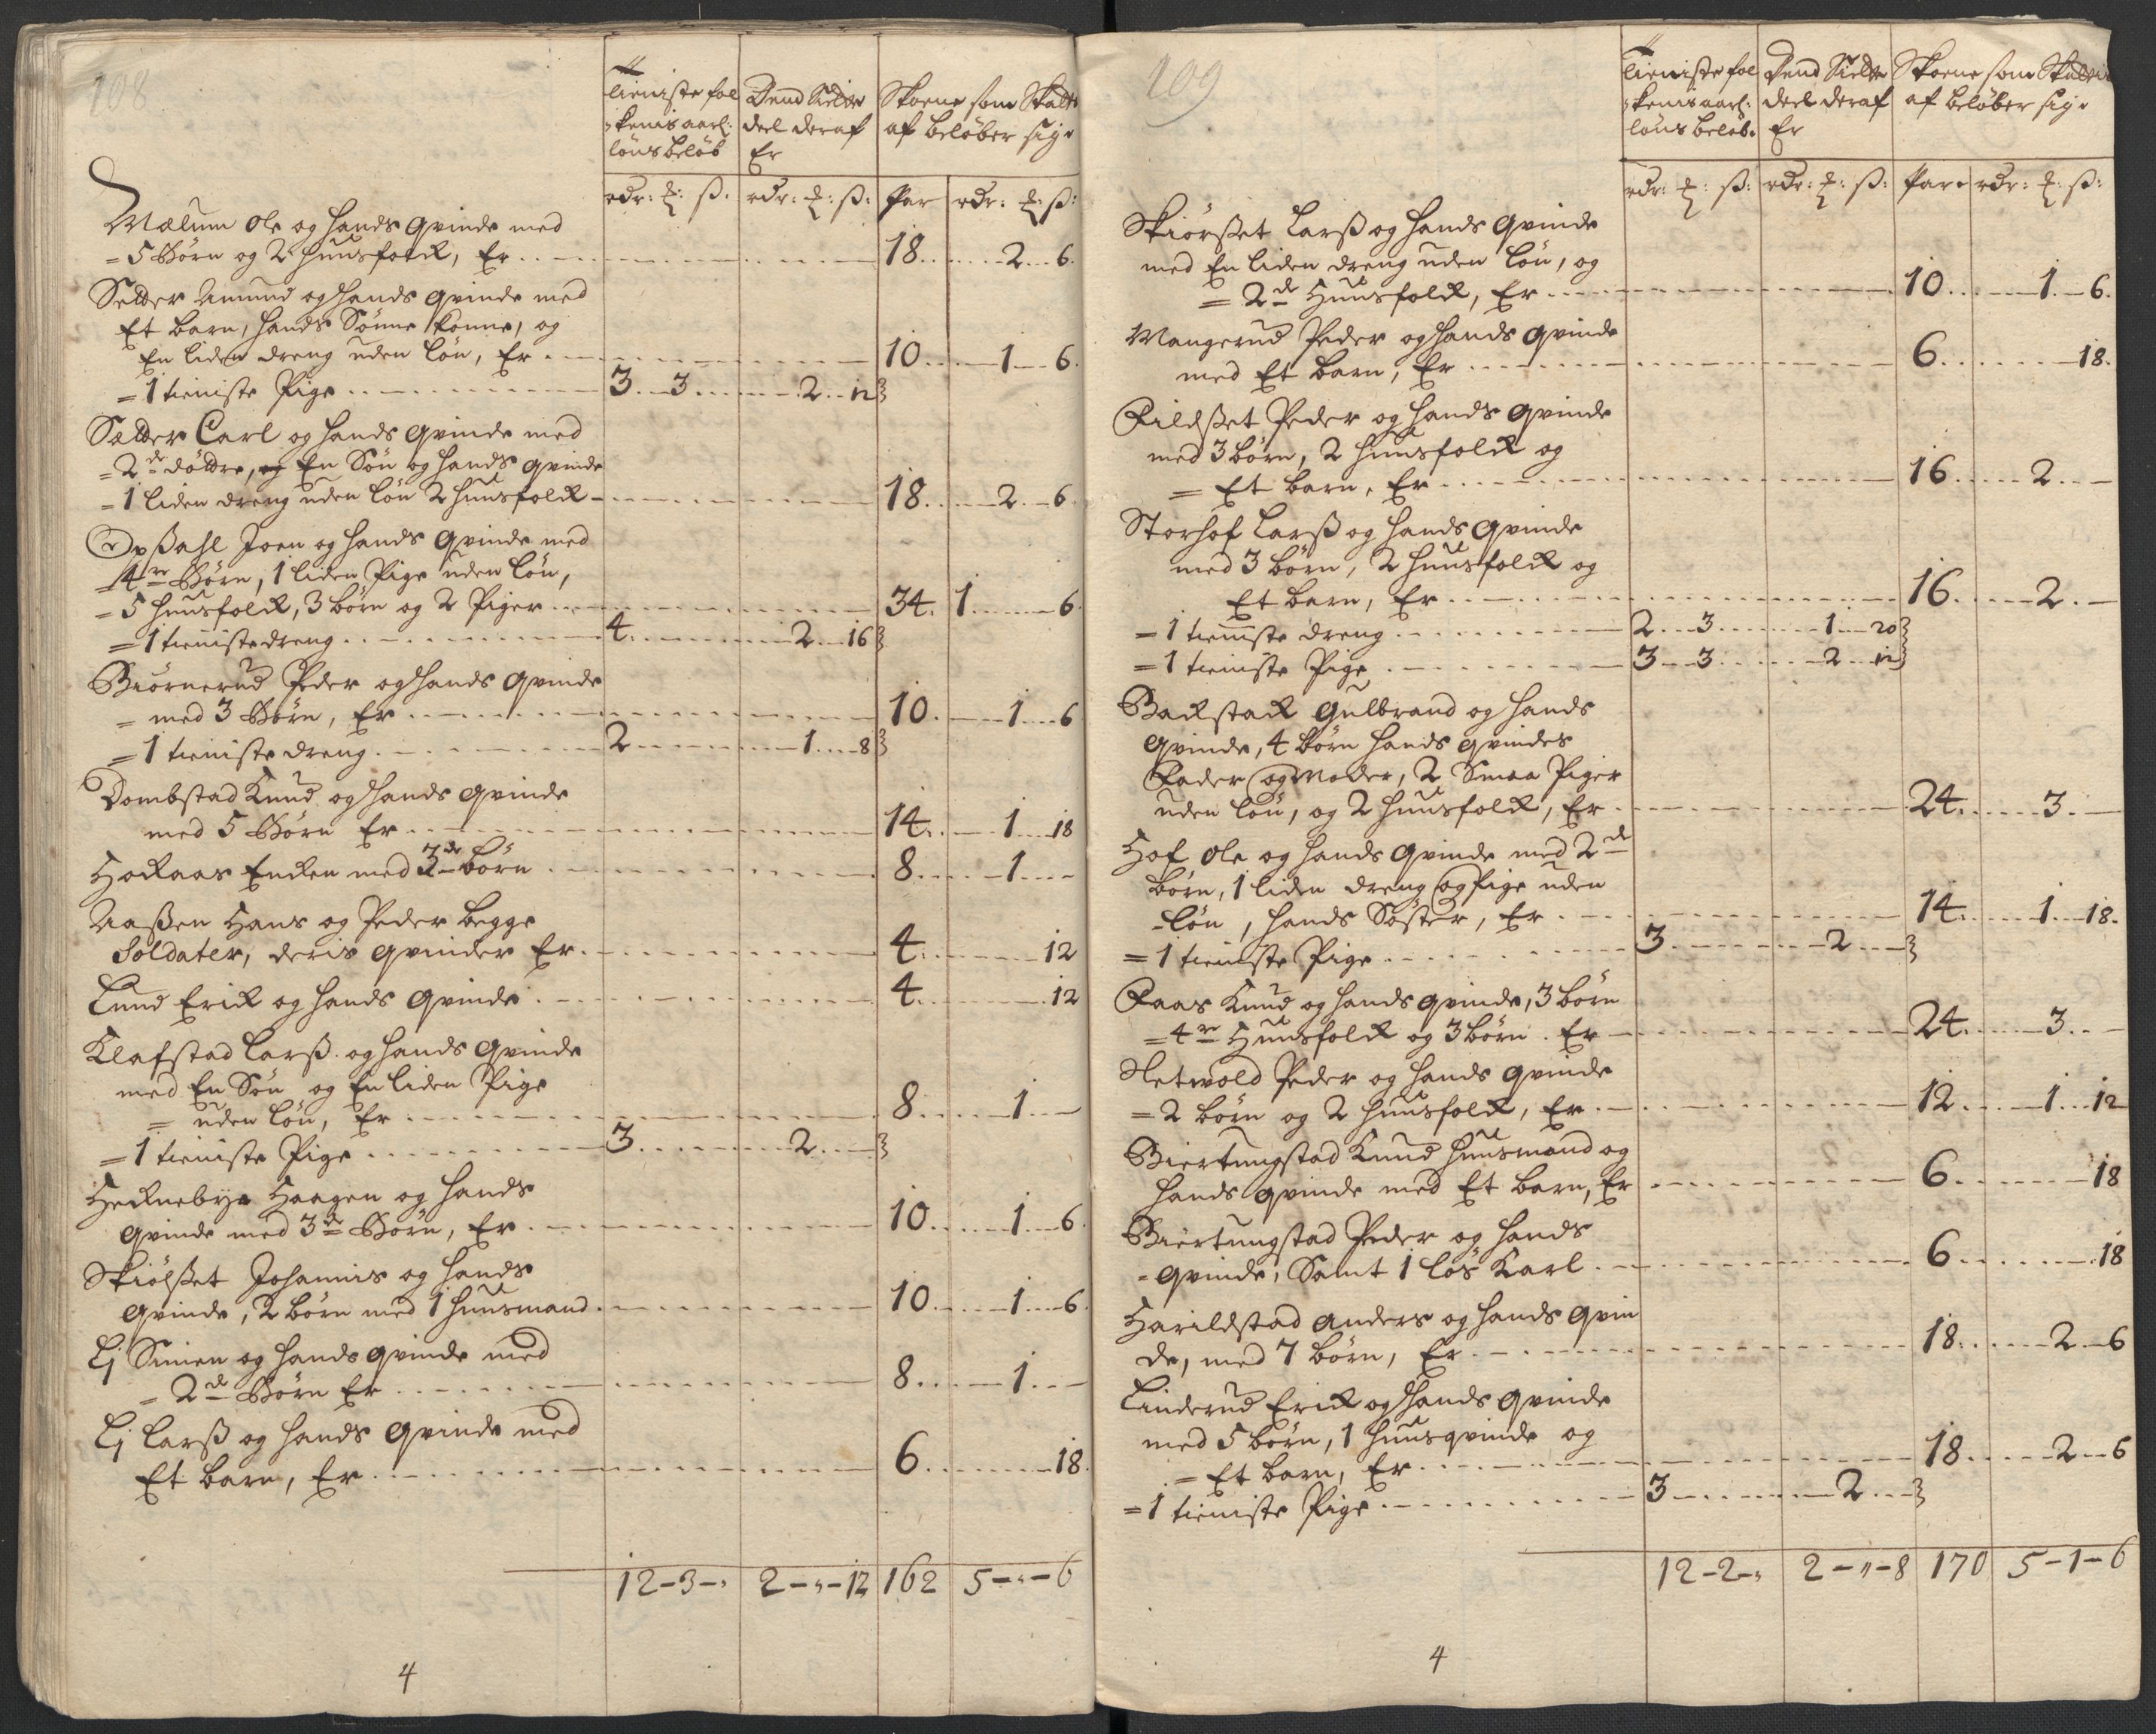 108
Tieniste fol
kenis aarl:
löns beløb
Dend Siette
deel deraf
Er
Skoene som Skatt
af beløber sig
rdr: ß: Par rdr: ß:
Mælum Ole og hands Qvinde med
= 5 Børn og 2 huusfolck, Er 18 2 6
Setter Amund og hands Qvinde med
Et barn, hands Sönne Konne, og
En liden dreng uden lön, Er 10 1 6
= 1 tieniste Pige 3 3 2 12
Sætter Carl og hands Qvinde med
= 2de döttre, og En Sön og hands qvinde
= 1 liden dreng uden lön 2 huusfolck 18 2 6
Opsahl Joen og hands Qvinde med
4re Börn, 1 liden Pige uden lön,
= 5 huusfolck, 3 börn og 2 Piger 34 1 6
= 1 tieniste dreng 4 2 16
Biörnerud Peder og hands Qvinde
= med 3 Börn, Er 10 1 6
= 1 tieniste dreng 2 1 8
Dombstad Knud og hands Qvinde
med 5 Börn Er 14 1 18
Hockaas Encken med 3de börn 8 1
Aaßen Hans og Peder begge
Soldater, deris qvinder Er 4 12
Lund Erick og hands Qvinde 4 12
Klafstad Larß og hands Qvinde
med En Sön og En liden Pige
= uden lön, Er 8 1
= 1 tieniste Pige 3 2
Hecknebye Haagen og hands
Qvinde med 3de Börn, Er 10 1 6
Skiölßet Johannis og hands
Qvinde, 2 börn med 1 huusmand 10 1 6
Lj Simen og hands qvinde med
= 2de Börn Er 8 1
Lj Larß og hands Qvinde med
Et barn, Er 6 18
12-3-" 2-"-12 162 5-"-6
4
109
Tieniste fol
kenis aarl:
löns beløb.
Dend Siette
deel deraf
Er
Skoene som Skatt
af beløber sig
rdr: ß: rdr: ß: Par rdr: ß:
Skiörßet Larß og hands Qvinde
med En liden dreng uden lön, og
= 2de Huusfolck, Er 10 1 6
Mangerud Peder og hands Qvinde
med Et barn, Er 6 18
Fildßet Peder og hands Qvinde
med 3 börn, 2 huusfolck og
= Et barn, Er 16 2
Storhof Larß og hands Qvinde
med 3 börn, 2 huusfolck og
Et barn, Er 16 2
= 1 tieniste dreng 2 3 1 20
= 1 tieniste Pige 3 3 2 12
Backstad Gulbrand og hands
Qvinde, 4 börn hands qvindes
Fader og Moder, 2 Smaa Piger
uden lön, og 2 huusfolck, Er 24 3
Hof Ole og hands Qvinde med 2de
börn, 1 liden dreng og Pige uden
lön, hands Söster, Er 14 1 18
= 1 tieniste Pige 3 2
Faas Knud og hands qvinde, 3 börn
= 4re Huusfolck og 3 börn. Er 24 3
Netwold Peder og hands Qvinde
= 2 börn og 2 huusfolck, Er 12 1 12
Biertungstad Knud huusmand og
hands qvinde med Et barn, Er 6 18
Biertungstad Peder og hands
Qvinde, Samt 1 lös Karl 6 18
Harildstad Anders og hands Qvin
de, med 7 börn, Er 18 2 6
Linderud Erick og hands Qvinde
med 5 börn, 1 huusqvinde og
= Et barn, Er 18 2 6
= 1 tieniste Pige 3 2
12-2-" 2-"-8 170 5-1-6
4